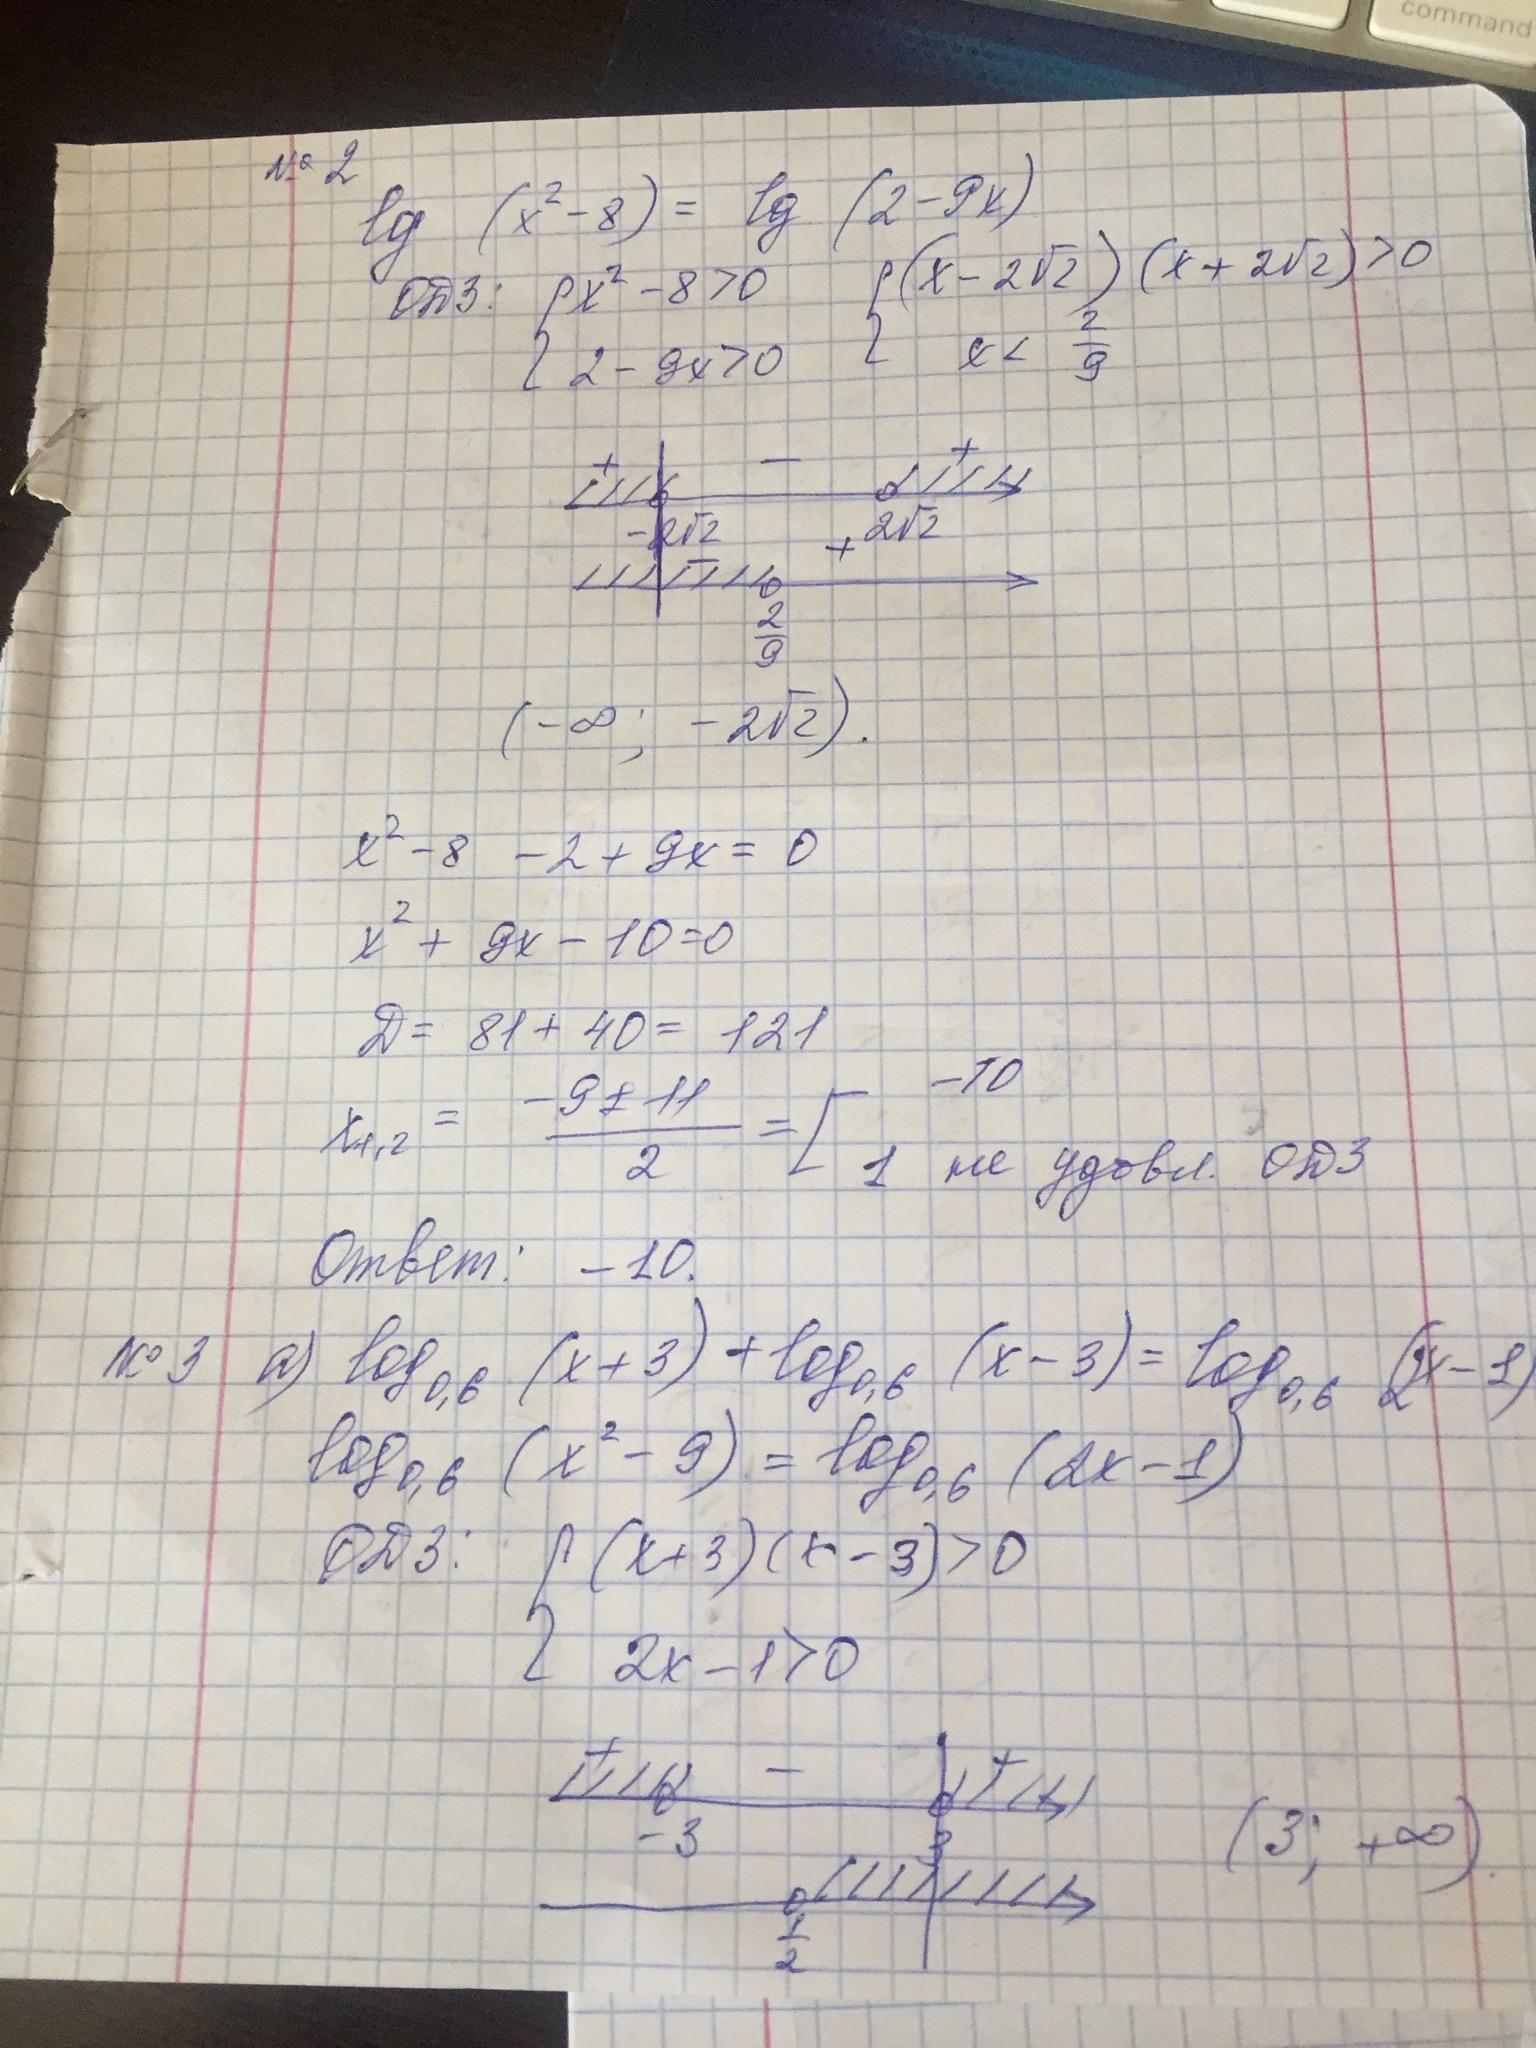 command
№ 2
lg (x² - 8) = lg (2 - 9x)
ОДЗ: { x² - 8 > 0 { (x - 2√2) (x + 2√2) > 0
2 - 9x > 0 x < 2/9
+ - +
-2√2 2√2
- +
2/9
(-∞; -2√2).
x² - 8 - 2 + 9x = 0
x² + 9x - 10 = 0
Д = 81 + 40 = 121
x₁,₂ = (-9 ± 11)/2 = [ -10
1 не удовл. ОДЗ
Ответ: -10.
№ 3 а) log₀,₆ (x + 3) + log₀,₆ (x - 3) = log₀,₆ (2x - 1)
log₀,₆ (x² - 9) = log₀,₆ (2x - 1)
ОДЗ: { (x + 3) (x - 3) > 0
2x - 1 > 0
+ - +
-3 3 (3; +∞).
1/2